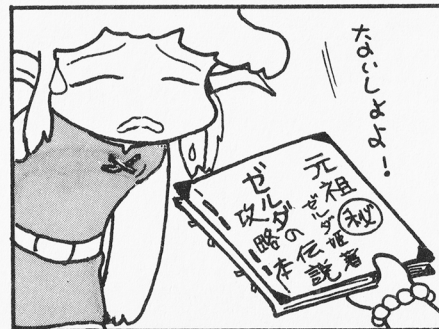 ないしょよ！
元祖
㊙
ゼルダ姫著
ゼルダの伝説
攻略本